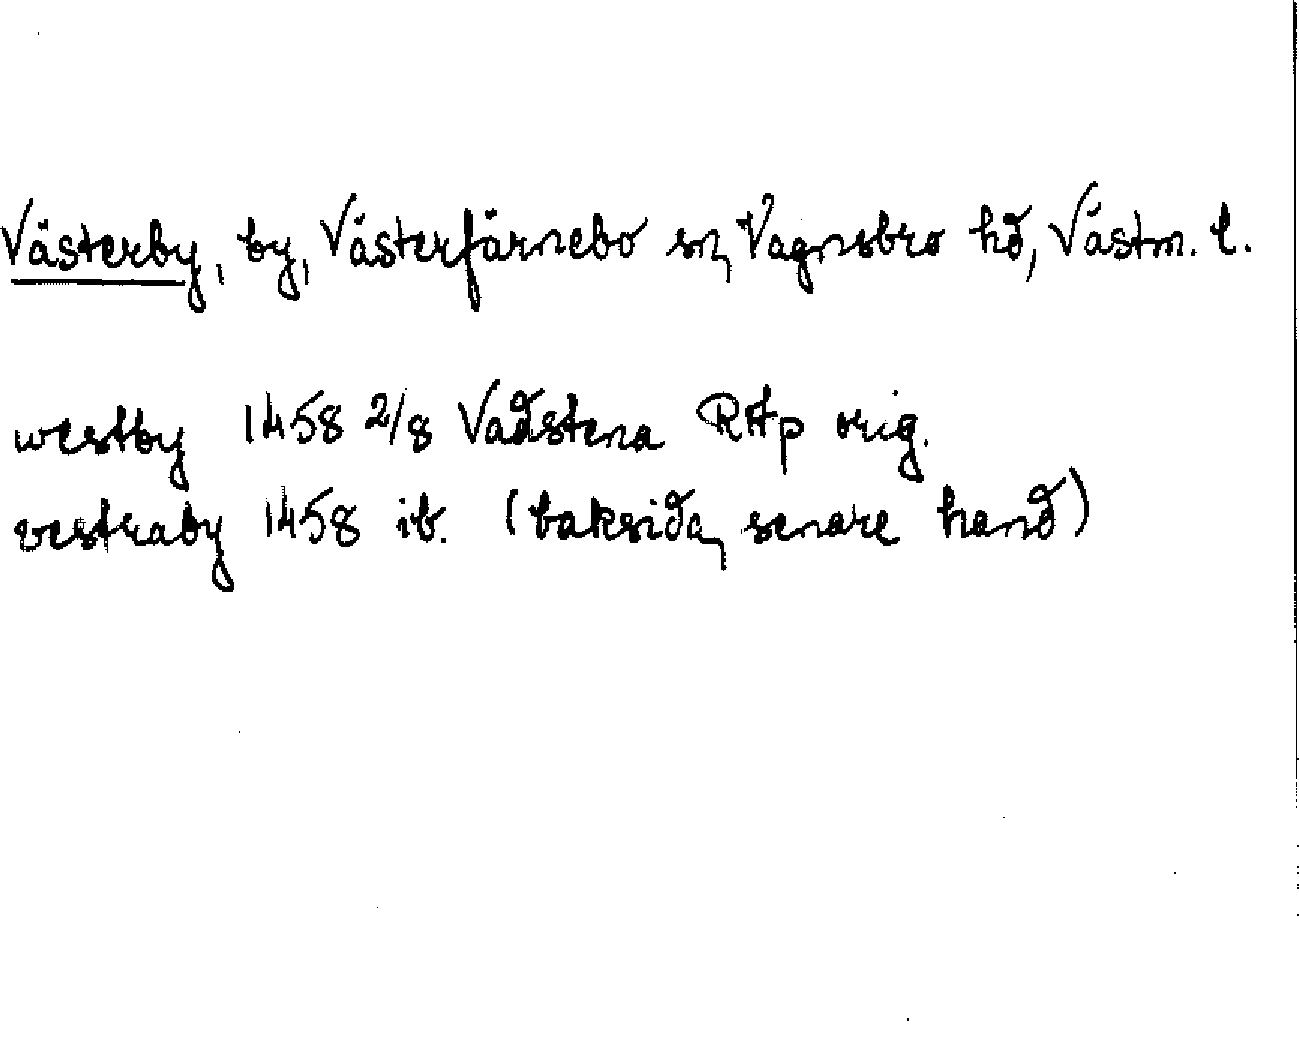 Västerby, by, Västerfärnebo sn, Vagnsbro hd, Västm. l.
westby 1458 2/8 Vadstena RAp orig.
vestraby 1458 ib. (baksida, senare hand)